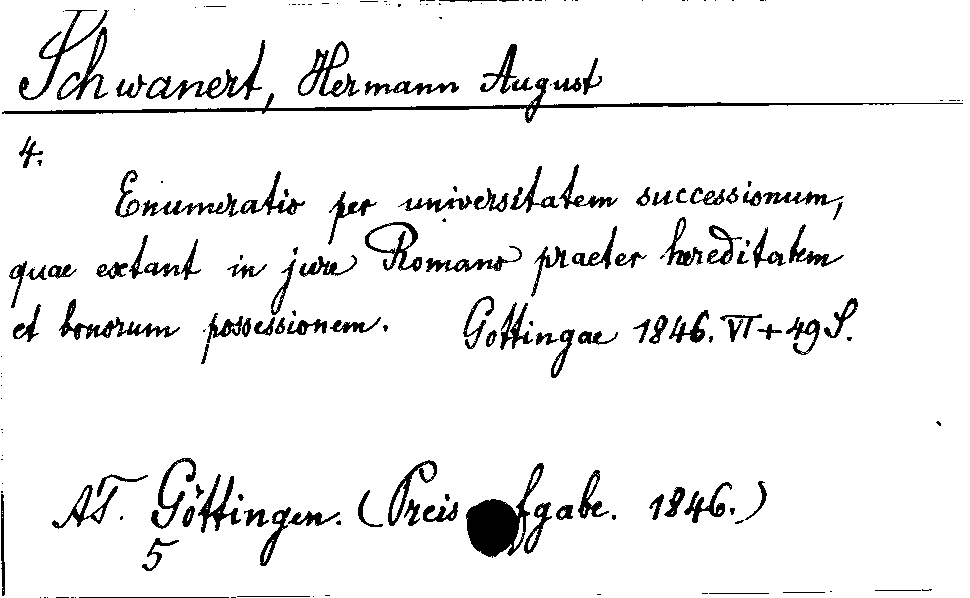 Schwanert, Hermann August
4.
Enumeratio per universitatem successionum,
quae extant in jure Romano praeter hereditatem
et bonorum possessionem. Gottingae 1846. VI + 49 S.
AT. Göttingen. (Preis fgabe. 1846.)
5